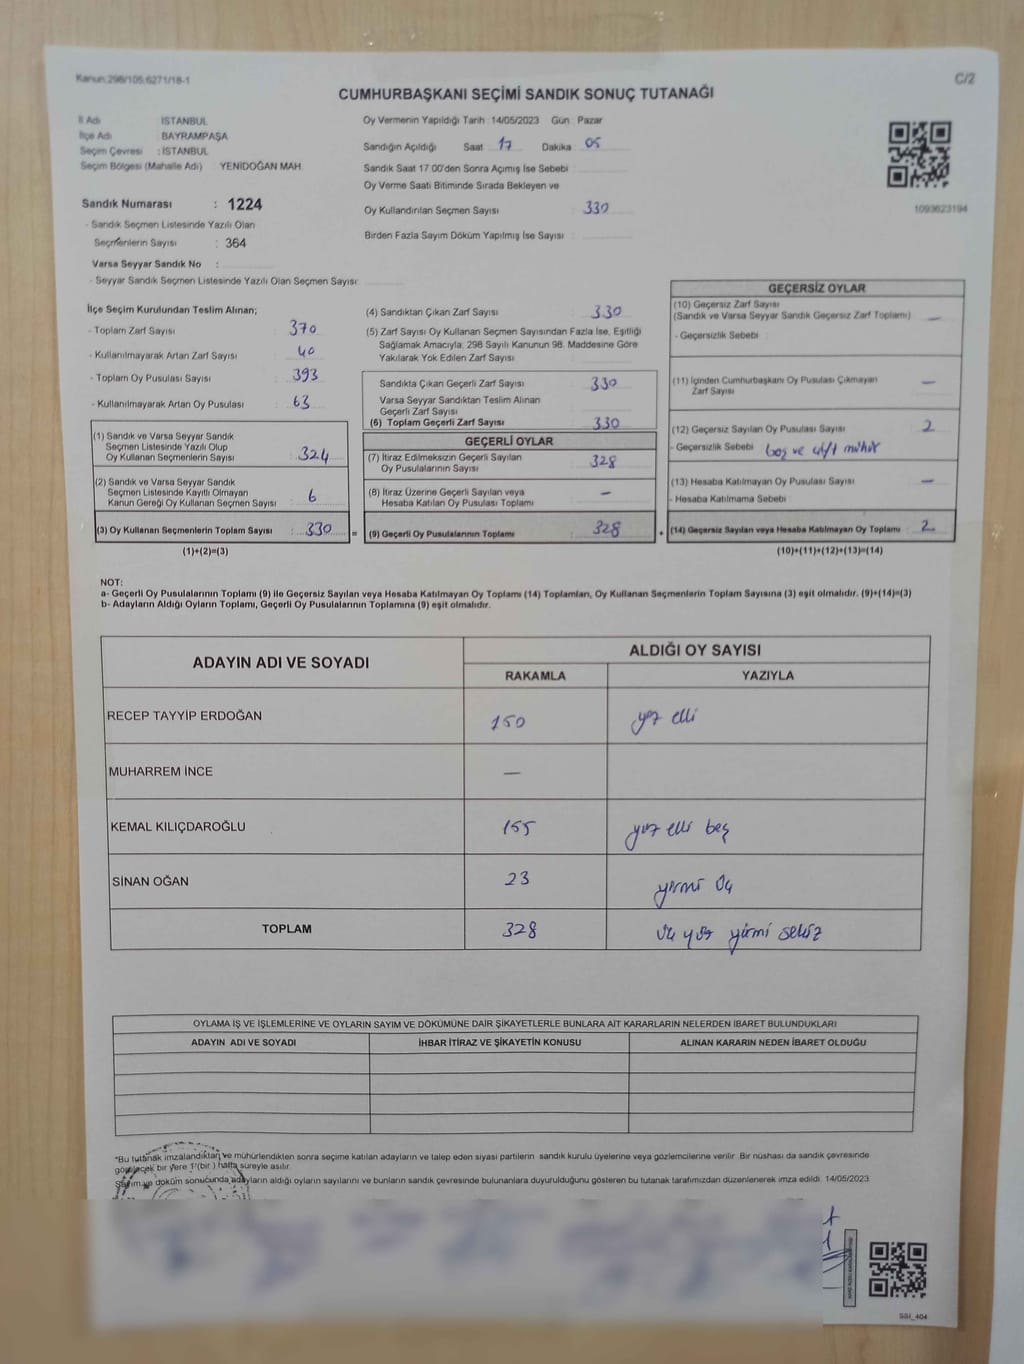 Kanun:298/105;6271/18-1
C/2
CUMHURBAŞKANI SEÇİMİ SANDIK SONUÇ TUTANAĞI
İl Adı : İSTANBUL
İlçe Adı : BAYRAMPAŞA
Seçim Çevresi : İSTANBUL
Seçim Bölgesi (Mahalle Adı) : YENİDOĞAN MAH.
Sandık Numarası : 1224
- Sandık Seçmen Listesinde Yazılı Olan
Seçmenlerin Sayısı : 364
Varsa Seyyar Sandık No :
- Seyyar Sandık Seçmen Listesinde Yazılı Olan Seçmen Sayısı:
Oy Vermenin Yapıldığı Tarih :14/05/2023 Gün : Pazar
Sandığın Açıldığı Saat : 17 Dakika : 05
Sandık Saat 17:00'den Sonra Açımış İse Sebebi :
Oy Verme Saati Bitiminde Sırada Bekleyen ve
Oy Kullandırılan Seçmen Sayısı : 330
Birden Fazla Sayım Döküm Yapılmış İse Sayısı :
1093623194
İlçe Seçim Kurulundan Teslim Alınan;
- Toplam Zarf Sayısı : 370
- Kullanılmayarak Artan Zarf Sayısı : 40
- Toplam Oy Pusulası Sayısı : 393
- Kullanılmayarak Artan Oy Pusulası : 63
(1) Sandık ve Varsa Seyyar Sandık
Seçmen Listesinde Yazılı Olup
Oy Kullanan Seçmenlerin Sayısı : 324
(2) Sandık ve Varsa Seyyar Sandık
Seçmen Listesinde Kayıtlı Olmayan
Kanun Gereği Oy Kullanan Seçmen Sayısı : 6
(3) Oy Kullanan Seçmenlerin Toplam Sayısı : 330 =
(1)+(2)=(3)
(4) Sandıktan Çıkan Zarf Sayısı : 330
(5) Zarf Sayısı Oy Kullanan Seçmen Sayısından Fazla İse, Eşitliği
Sağlamak Amacıyla; 298 Sayılı Kanunun 98. Maddesine Göre
Yakılarak Yok Edilen Zarf Sayısı :
Sandıkta Çıkan Geçerli Zarf Sayısı : 330
Varsa Seyyar Sandıktan Teslim Alınan
Geçerli Zarf Sayısı :
(6) Toplam Geçerli Zarf Sayısı : 330
GEÇERLİ OYLAR
(7) İtiraz Edilmeksizin Geçerli Sayılan
Oy Pusulalarının Sayısı : 328
(8) İtiraz Üzerine Geçerli Sayılan veya
Hesaba Katılan Oy Pusulası Toplamı : —
(9) Geçerli Oy Pusulalarının Toplamı : 328 +
GEÇERSİZ OYLAR
(10) Geçersiz Zarf Sayısı
(Sandık ve Varsa Seyyar Sandık Geçersiz Zarf Toplamı) : —
- Geçersizlik Sebebi :
(11) İçinden Cumhurbaşkanı Oy Pusulası Çıkmayan
Zarf Sayısı : —
(12) Geçersiz Sayılan Oy Pusulası Sayısı : 2
- Geçersizlik Sebebi : boş ve çift mühür
(13) Hesaba Katılmayan Oy Pusulası Sayısı : —
- Hesaba Katılmama Sebebi :
(14) Geçersiz Sayılan veya Hesaba Katılmayan Oy Toplamı : 2
(10)+(11)+(12)+(13)=(14)
NOT:
a- Geçerli Oy Pusulalarının Toplamı (9) ile Geçersiz Sayılan veya Hesaba Katılmayan Oy Toplamı (14) Toplamları, Oy Kullanan Seçmenlerin Toplam Sayısına (3) eşit olmalıdır. (9)+(14)=(3)
b- Adayların Aldığı Oyların Toplamı, Geçerli Oy Pusulalarının Toplamına (9) eşit olmalıdır.
ADAYIN ADI VE SOYADI
ALDIĞI OY SAYISI
RAKAMLA YAZIYLA
RECEP TAYYİP ERDOĞAN 150 yüz elli
MUHARREM İNCE —
KEMAL KILIÇDAROĞLU 155 yüz elli beş
SİNAN OĞAN 23 yirmi üç
TOPLAM 328 üç yüz yirmi sekiz
OYLAMA İŞ VE İŞLEMLERİNE VE OYLARIN SAYIM VE DÖKÜMÜNE DAİR ŞİKAYETLERLE BUNLARA AİT KARARLARIN NELERDEN İBARET BULUNDUKLARI
ADAYIN ADI VE SOYADI İHBAR İTİRAZ VE ŞİKAYETİN KONUSU ALINAN KARARIN NEDEN İBARET OLDUĞU
*Bu tutanak imzalandıktan ve mühürlendikten sonra seçime katılan adayların ve talep eden siyasi partilerin sandık kurulu üyelerine veya gözlemcilerine verilir. Bir nüshası da sandık çevresinde
görülecek bir yere 1 (bir) hafta süreyle asılır.
Sayım ve döküm sonucunda adayların aldığı oyların sayılarını ve bunların sandık çevresinde bulunanlara duyurulduğunu gösteren bu tutanak tarafımızdan düzenlenerek imza edildi. 14/05/2023
SSI_404